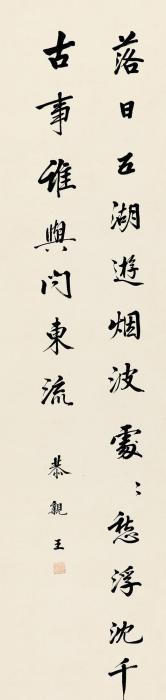 落日五湖遊烟波處〻愁浮沈千
古事誰與問東流
恭親王